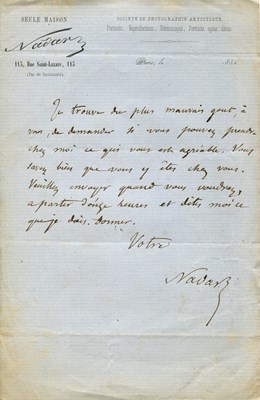 SEULE MAISON
Nadar
113, Rue Saint-Lazare, 113
SOCIÉTÉ DE PHOTOGRAPHIE ARTISTIQUE
Portraits, Reproductions,
Paris, le 185
Je trouve du plus mauvais gout, à
vous, de demander si vous pouvez prendre
chez moi ce qui vous est agréable. Vous
savez bien que vous y êtes chez vous.
Veuillez envoyer quand vous voudrez,
a partir d'onze heures et dites moi ce
que je dois donner.
Votre
Nadar